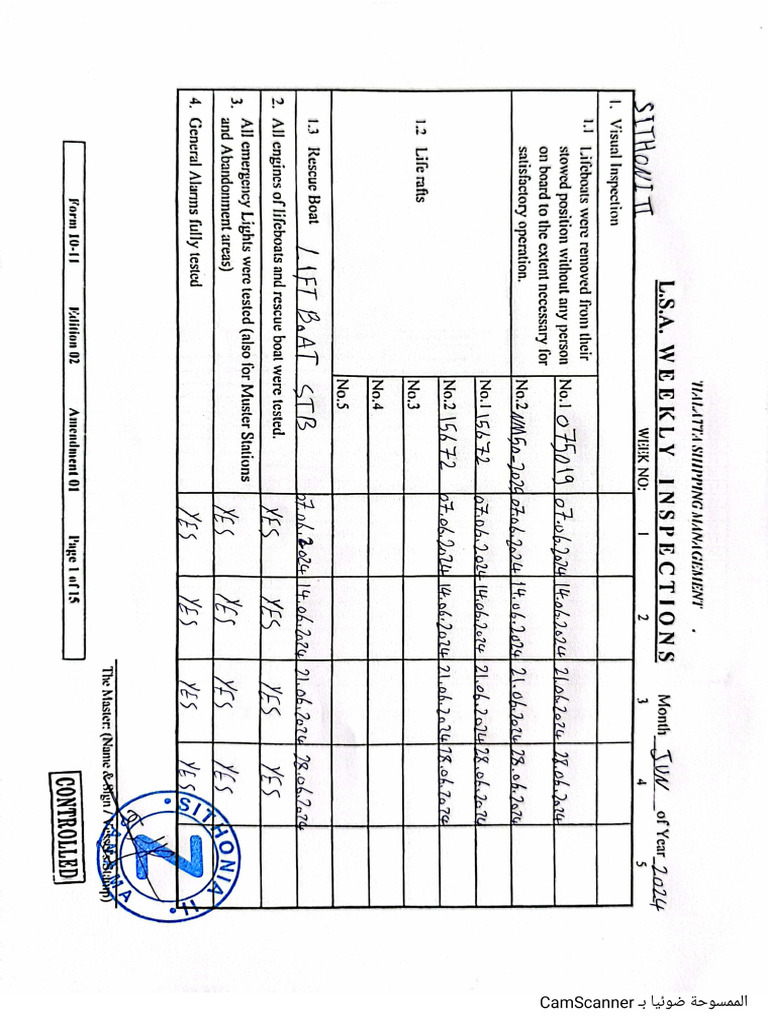 SHIPPING MANAGEMENT
L.S.A. WEEKLY INSPECTIONS
Month JUN of Year 2024
SITHONI II
WEEK NO: 1 2 3 4 5
1. Visual Inspection
1.1 Lifeboats were removed from their
stowed position without any person
on board to the extent necessary for
satisfactory operation.
No.1 075N19 07.06.2024 14.06.2024 21.06.2024 28.06.2024
No.2 07.06.2024 14.06.2024 21.06.2024 28.06.2024
1.2 Life rafts
No.1 15672 07.06.2024 14.06.2024 21.06.2024 28.06.2024
No.2 15672 07.06.2024 14.06.2024 21.06.2024 28.06.2024
No.3
No.4
No.5
1.3 Rescue Boat LIFT BOAT STB 07.06.2024 14.06.2024 21.06.2024 28.06.2024
2. All engines of lifeboats and rescue boat were tested. YES YES YES YES
3. All emergency Lights were tested (also for Muster Stations
and Abandonment areas) YES YES YES YES
4. General Alarms fully tested YES YES YES YES
SITHONIA II
The Master: (Name & Sign /
Form 10-11 Edition 02 Amendment 01 Page 1 of 15
CONTROLLED
الممسوحة ضوئيا بـ CamScanner